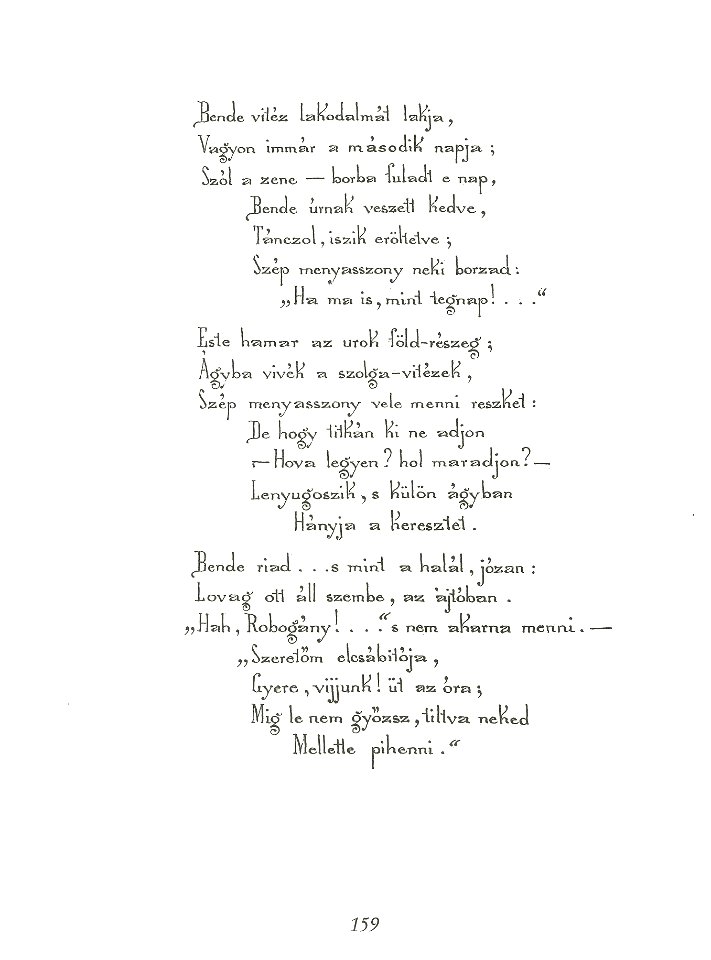 Bende vitéz lakodalmát lakja,
Vagyon immár a második napja;
Szól a zene — borba fuladt e nap,
Bende úrnak veszett kedve,
Tánczol, iszik erőltetve;
Szép menyasszony neki borzad:
„Ha ma is, mint tegnap! . . .“
Este hamar az urok föld-részeg;
Ágyba vivék a szolga-vitézek,
Szép menyasszony vele menni reszket:
De hogy titkán ki ne adjon
— Hova legyen? hol maradjon? —
Lenyugoszik, s külön ágyban
Hányja a keresztet.
Bende riad . . . s mint a halál, józan:
Lovag ott áll szembe, az ajtóban.
„Hah, Robogány! . . .“ s nem akarna menni. —
„Szeretőm elcsábitója,
Gyere, vijjunk! üt az óra;
Mig le nem győzsz, tiltva neked
Mellette pihenni.“
159